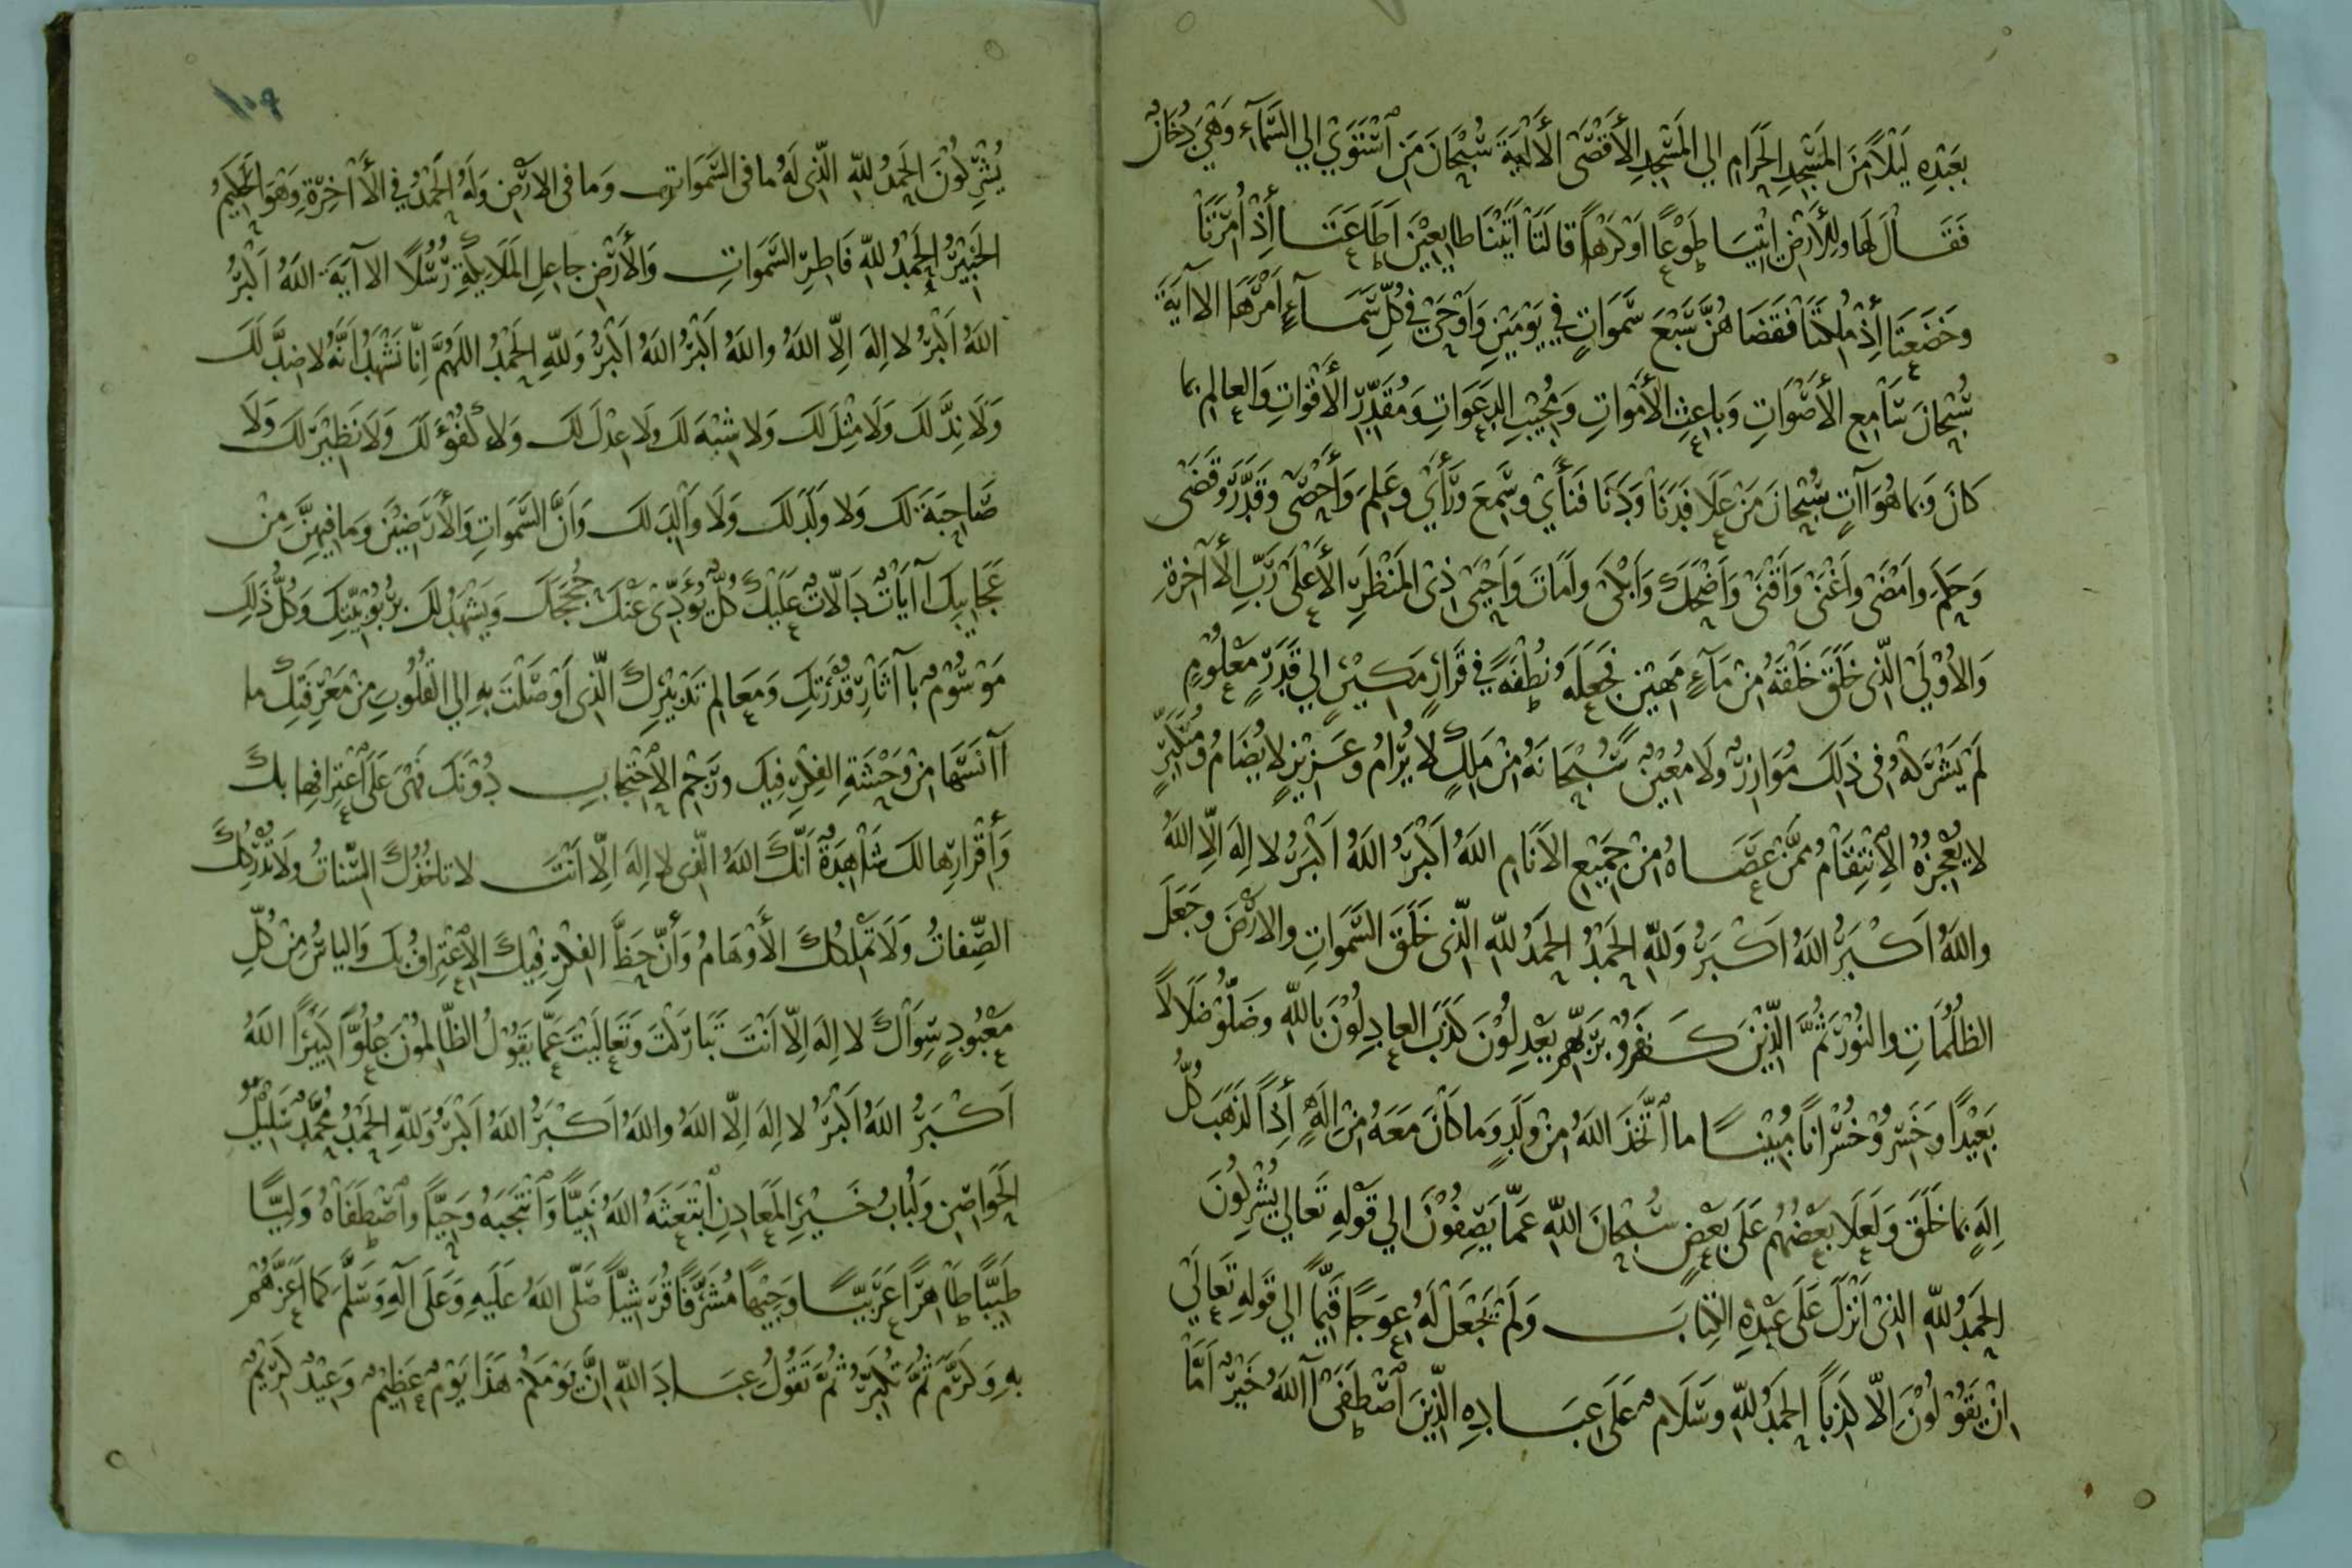 بِعَبْدِهِ لَيْلًا مِنَ المَسْجِدِ الحَرَامِ الي المَسْجِدِ الأَقْصَى الْأَايَةَ سُبْحَانَ مَنِ اسْتَوَيْ الي السَّمَآءِ وَهْيَ دُخَانٌ
فَقَالَ لَهَا وَلِلأَرْضِ ائْتِيَا طَوْعًا اَوْ كَرْهًا قَالَتَا أَتَيْنَا طايِعِيْنَ اَطَاعَتَا أِذْ اُمِرَتَا
وخَضَعَتَا أِذْ مُلِكَتَا فَقَضَاهُنَّ سَبْعَ سَّمَوَاتٍ فِي يَوْمَيْنِ وَاَوْحَيْ فِي كُلِّ سَمَآءٍ اَمْرَهَا الاآيَةَ
سُبْحَانَ سَامِعِ الأَصْوَاتِ وَبَاعِثِ الأَمْوَاتِ وَمُجِيْبِ الدَّعَوَاتِ وَمُقَدِّرِ الأَقْوَاتِ وَالعالِمِ بما
كانَ وَبِما هُوَ آاتٍ سُبْحَانَ مَنْ عَلَا فَدَنَا وَدَنَا فَنَأَيْ وسَمِعَ ورَأَيْ وعَلِمَ وَأَحْصَى وقَدَّرَ وقَضَى
وَحَكَمَ وامَضَى وَاَغْنَى وَاَقْنَى وَاَضْحَكَ وَاَبْكَى واَمَاتَ وَاَحْيَى ذِى المَنْظَرِ الأَعْلَى رَبِّ الأَاخِرَةِ
وَالأُوْلَيْ الَّذِى خَلَقَ خَلْقَهُ مِنْ مَآءٍ مَهِيْنٍ فَجَعَلَهُ نُطْفَةً فِي قَرَارٍ مَكِيْنٍ الي قَدَرٍ مَعْلُومٍ
لَمْ يَشْرَكْهُ فى ذَلِكَ مُوَازِرٌ ولَا مُعِيْنٌ سُبْحَانَهُ مِنْ مَلِكٍ لا يُرَامُ وعَزِيزٍ لا يُضَامُ ومُتَكَبِّرٍ
لا يُعْجِزُهُ الأِنْتِقَامُ مِمَّنْ عَصَاهُ مِنْ جَمِيْعِ الأَنَامِ اللهُ اَكْبَرُ اللهُ اَكْبَرُ لا اِلهَ اِلَّا اللهُ
واللهُ اَكْبَرُ اللهُ اَكْبَرُ وَللهِ الحَمْدُ الحَمْدُ للهِ الَّذِى خَلَقَ السَّمَوَاتِ والارْضَ وجَعَلَ
الظُلُمَاتِ والنُوْرَ ثُمَّ الَّذِيْنَ كَفَرُوْ بِرَبِّهِمْ يَعْدِلُوْنَ كَذَبَ العادِلُونَ بِاللهِ وضَلُّوْ ضَلَالًا
بَعِيْدًا وَخَسِرُوْ خُسْرَانًا مُبِيْنًا ما اتَّخَذَ اللهُ مِنْ وَلَدٍ وَما كَانَ مَعَهُ مِنْ اِلَهٍ أِذًا لَذَهَبَ كُلُّ
اِلَهٍ بِما خَلَقَ وَلَعَلَا بَعْضُهُمْ عَلَى بَعْضٍ سُبْحَانَ اللهِ عَمَّا يَصِفُوْنَ الي قَوْلِهِ تَعَالي يُشْرِكُونَ
الحَمْدُ للهِ الذِىْ اَنْزَلَ عَلَى عَبْدِهِ الكِتَابَ وَلَمْ يَجْعَلْ لَهُ عِوَجًا قَيِّمًا الي قَولِهِ تَعَالَيْ
اِنْ يَقُوْلُوْنَ اِلَّا كَذِبًا الحَمْدُ للهِ وسَلَامٌ عَلَى عِبَادِهِ الَّذِينَ اصْطَفَى أاللهُ خَيْرٌ اَمَّا
يُشْرِكُوْنَ الحَمْدُ للهِ الَّذِى لَهُ ما فى السَّمَوَاتِ وَما فى الارْضِ وَلَهُ الحَمْدُ فِي الأَاخِرَةِ وَهْوَ الحَكِيْمُ
الخَبِيْرُ الحَمْدُ للهِ فَاطِرِ السَّمَوَاتِ وَالأَرْضِ جاعِلِ المَلَايِكَةِ رُسُلًا الاآيَةَ اللهُ اَكْبَرُ
اللهُ اَكْبَرُ لا اِلهَ اِلَّا اللهُ واللهُ اَكْبَرُ اللهُ اَكْبَرُ وَللهِ الحَمْدُ اللهُمَّ اِنَّا نَشْهَدُ اَنَّهُ لا ضِدَّ لَكَ
وَلَا نِدَّ لَكَ وَلَا مِثْلَ لَكَ وَلا شِبْهَ لَكَ ولَا عِدْلَ لَكَ وَلا كُفُوْءَ لَكَ وَلَا نَظِيْرَ لَكَ وَلَا
صَاحِبَةَ لَكَ وَلا وَلَدَ لَكَ وَلَا وَالِدَ لَكَ وَاَنَّ السَّمَوَاتِ وَالأَرَضِيْنَ وَما فِيهِنَّ مِنْ
عَجَايِبِكَ آايَاتٌ دَالَّاتٌ عَلَيْكَ كُلٌّ يُؤَدِّىْ عَنْكَ حُجَجَكَ وَيَشْهَدُ لَكَ بِرُبُوْبِيَّتِكَ وَكُلُّ ذَلِكَ
مَوْسُوْمٌ بِآاثَارِ قُدْرَتِكَ وَمَعالِمِ تَدْبِيْرِكَ الَّذِى اَوْصَلْتَ بِهِ الي القُلُوْبِ مِنْ مَعْرِفَتِكَ ما
آانَسَهَا مِنْ وَحْشَةِ الفِكْرِ فِيكَ ورَجْمِ الأِحْتِجَابِ دُوْنَكَ فَهْىَ عَلَى اعْتِرَافِها بكَ
وَأِقْرَارِها لَكَ شَاهِدَةٌ اَنَّكَ اللهُ الَّذِى لا اِلهَ اِلَّا اَنْتَ لا تاخُذُكَ السِّنَاتُ ولا تُدْرِكُكَ
الصِّفاتُ وَلَا تَمْلِكُكَ الأَوْهَامُ وَأَنَّ حَظَّ الفِكْرِ فِيْكَ الأِعْتِرافُ بكَ وَالياسُ مِنْ كُلِّ
مَعْبُودٍ سِوَاكَ لا اِلهَ اِلَّا اَنْتَ تَبَارَكْتَ وَتَعَالَيْتَ عَمَّا يَقُوْلُ الظَّالِمُوْنَ عُلُوًّا كَبِيْرًا اللهُ
اَكْبَرُ اللهُ اَكْبَرُ لا اِلهَ اِلَّا اللهُ واللهُ اَكْبَرُ اللهُ اَكْبَرُ وَللهِ الحَمْدُ مُحَمَّدٌ سَلِيْلُ
الحَوَاصِنِ وَلُبَابُ خَيْرِ المَعَادِنِ ابْتَعَثَهُ اللهُ نَبِيًّا وَانْتَجَبَهُ وَحِيًّا واصْطَفَاهُ وَلِيًّا
طَيِّبًا طَاهِرًا عَرَبِيًّا وَجِيْهًا مُشَرَّفًا قُرَشِيًّا صَلَّى اللهُ عَلَيهِ وَعَلَى آلِهِ وَسَلَّمَ كَمَا اَعَزَّهُمْ
بِهِ وَكَرَّمَ ثُمَّ تُكَبِّرُ ثُمَّ تَقُوْلُ عِبَادَ اللهِ اِنَّ يَوْمَكُمْ هَذَا يَوْمٌ عَظِيْمٌ وَعِيْدٌ كَرِيْمٌ